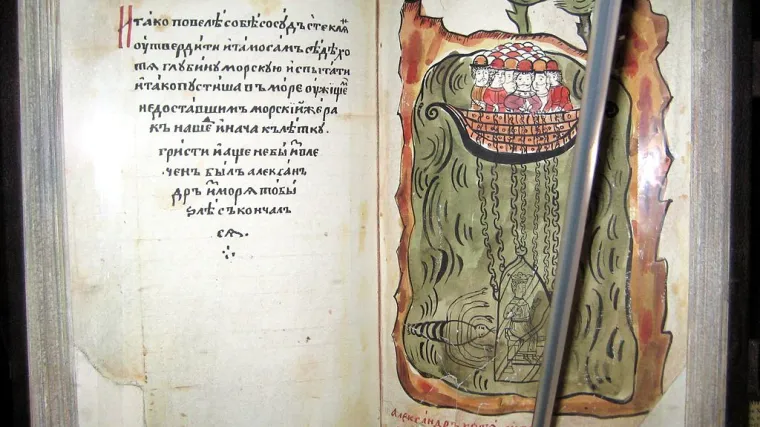 И тако повелѣ собѣ сосудъ стеклѧ
оутвердити и тамо самъ сѣдѣ хо
тѧ глубину морскую испытати
и тако пустиша въ море оужище
недоставшимъ морскїй же ра
къ наше и нача клѣтку
грїсти и аще не бы и҆звле
ченъ былъ алеѯан
дръ и҆ морѧ то бы
ѕлѣ съкончал
сѧ.
алеѯандръ